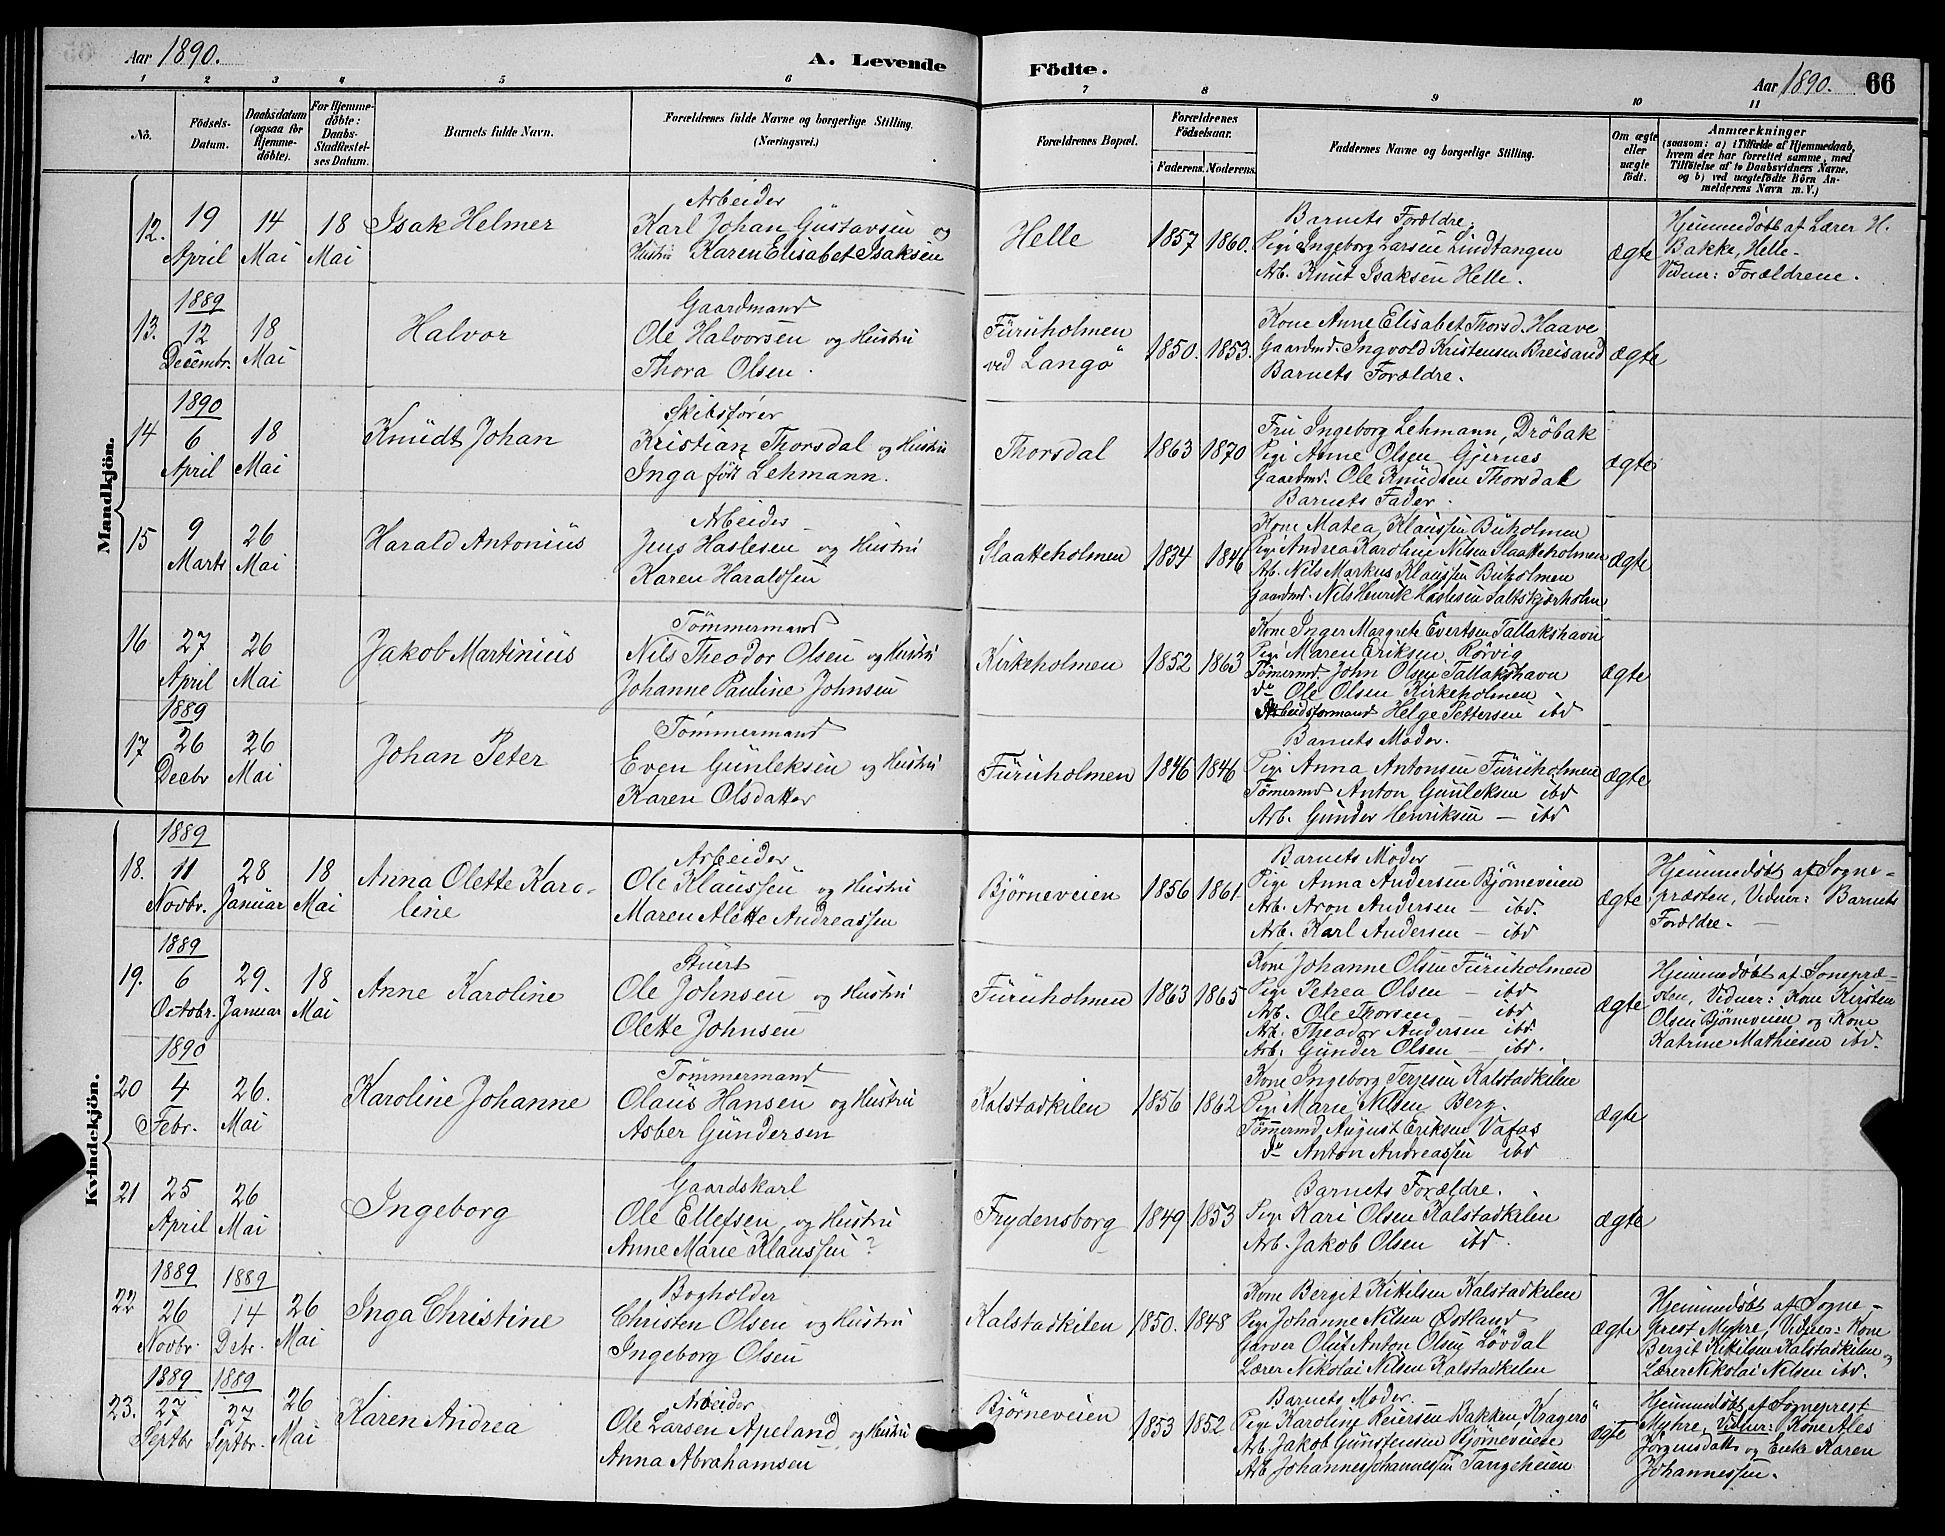 Aar 1890.
A. Levende Födte.
Aar 1890. 66
1 2 3 4 5 6 7 8 9 10 11
No.
Födsels-Datum.
Daabsdatum (ogsaa for Hjemme-döbte).
For Hjemme-döbte: Daabs-Stadfæstel-ses Datum.
Barnets fulde Navn.
Forældrenes fulde Navne og borgerlige Stilling. (Næringsvei.)
Forældrenes Bopæl.
Forældrenes Födselsaar.
Faderens. Moderens.
Faddernes Navne og borgerlige Stilling.
Om ægte eller uægte födt.
Anmærkninger
(saasom: a) i Tilfælde af Hjemmedaab,
hvem der har forrettet samme, med
Tilföielse af to Daabsvidners Navne.
og b) ved uægtefödte Börn An-
melderens Navn m. V.)
Mandkjön.
12. 19 April
14 Mai
18 Mai
Isak Helmer
Arbeider
Karl Johan Gustavsen og
Hustru Karen Elisabet Isaksen
Helle
1857 1860.
Barnets Forældre.
Pige Ingeborg Larsen Lindtangen
Arb. Knut Isaksen Helle.
ægte
Hjemmedøbt af Lærer H.
Bakke, Helle.
Vidner: Forældrene.
13. 1889
12 Decembr.
18 Mai
Halvor
Gaardmand
Ole Halvorsen og Hustru
Thora Olsen.
Furuholmen
ved Langö
1850. 1853.
Kone Anne Elisabet Thorsd. Haave
Gaardmd. Ingvold Kristensen Breisand
Barnets Forældre.
ægte
14 1890
6 April
18 Mai
Knudt Johan
Skibsfører
Kristian Thorsdal og Hustru
Inga født Lehmann.
Thorsdal
1863 1870
Fru Ingeborg Lehmann, Dröbak
Pige Anne Olsen Gjernes
Gaardmd. Ole Knudsen Thorsdal
Barnets Fader.
ægte
15 9 Marts
26 Mai
Harald Antonius
Arbeider
Jens Haslesen og Hustru
Karen Haraldsen
Slaatteholmen
1834 1846
Kone Matea Klaussen Buholmen
Pige Andrea Karoline Nilsen Slaatteholmen
Arb. Nils Markus Klaussen Buholmen
Gaardmd. Nils Henrik Haslesen Saltskjærholm
ægte
16 27 April
26 Mai
Jakob Martinius
Tömmermand
Nils Theodor Olsen og Hustru
Johanne Pauline Johnsen
Kirkeholmen
1852 1863
Kone Inger Margrete Evertsen Tallakshavn
Pige Maren Eriksen Rörvig
Tömermd. John Olsen Tallakshavn
do Ole Olsen Kirkeholmen
Arbeidsformand Helge Pettersen ibd
ægte
17 1889
26 Decbr
26 Mai
Johan Peter
Tömmermand
Even Gunleksen og Hustru
Karen Olsdatter
Furuholmen
1846 1846
Barnets Moder.
Pige Anna Antonsen Furuholmen
Tömermd Anton Gunleksen ibd
Arb. Gunder Henriksen — ibd
ægte
Kvindekjön.
18. 1889
11 Novbr.
28 Januar
18 Mai
Anna Olette Karo-
line
Arbeider
Ole Klaussen og Hustru
Maren Alette Andreassen
Bjørneveien
1856 1861.
Barnets Moder
Pige Anna Andersen Bjørneveien
Arb. Aron Andersen — ibd.
Arb. Karl Andersen — ibd
ægte
Hjemmedøbt af Sogne-
præsten, Vidner: Barnets
Forældre.
19. 1889
6 Octobr.
29. Januar
18 Mai
Anne Karoline
Stuert
Ole Johnsen og Hustru
Olette Johnsen
Furuholmen
1863 1865
Kone Johanne Olsen Furuholmen
Pige Petrea Olsen — ibd
Arb. Ole Thorsen — ibd
Arb. Theodor Andersen ibd.
Arb. Gunder Olsen — ibd.
ægte
Hjemmedøbt af Sonepræ-
sten, Vidner: Kone Kirsten
Olsen Bjørneveien og Kone
Katrine Mathiesen ibd.
20 1890
4 Febr.
26. Mai
Karoline Johanne
Tömmermand
Olaus Hansen og Hustru
Asber Gundersen
Kalstadkilen
1856 1862
Kone Ingeborg Terjesen Kalstadkilen
Pige Marie Nilsen Berg.
Tömermd August Eriksen Vafos
do Anton Andreassen ibd
ægte
21 25 April
26 Mai
Ingeborg
Gaardskarl
Ole Ellefsen og Hustru
Anne Marie Klaussen?
Frydensborg
1849 1853
Barnets Forældre.
Pige Kari Olsen Kalstadkilen
Arb. Jakob Olsen ibd.
ægte
22 1889
26 Novbr.
1889
14 Dcbr.
26 Mai
Inga Christine
Bogholder
Christen Olsen og Hustru
Ingeborg Olsen
Kalstadkilen
1850. 1848
Kone Bergit Kittilsen Kalstadkilen
Pige Johanne Nilsen Østland
Garver Oluf Anton Olsen Lövdal
Lærer Nikolai Nilsen Kalstadkilen
ægte
Hjemmedøbt af Sogne-
prest Myhre, Vidner: Kone
Bergit Kittilsen Kalstadkilen og
Lærer Nikolai Nilsen ibd.
23. 1889
27 Septbr
1889
27 Septbr.
26 Mai
Karen Andrea
Arbeider
Ole Larsen Apeland og Hustru
Anna Abrahamsen
Bjørneveien
1853 1852
Barnets Moder.
Pige Karoline Reiersen Bakken Kragerö
Arb. Jakob Gunstensen Bjørneveien
Arb Johannes Johannessen Tangeheien
ægte
Hjemmedøbt af Sogneprest
Myhre, Vidner: Kone Ales
Jörgensdatter og Enke Karen
Johannessen.